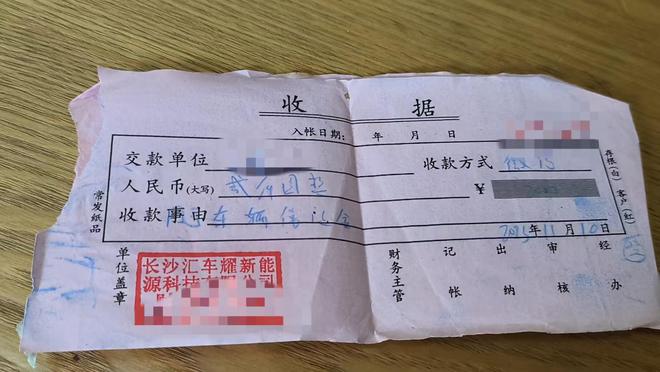 收据
入帐日期： 年 月 日
交款单位 收款方式 微信
人民币(大写) 贰仟圆整 ¥
收款事由 车辆保证金
11月10日
单位盖章
长沙汇车耀新能
源科技有限公司
财务主管 记帐 出纳 审核 经办
常发纸品
存根(白) 客户(红)